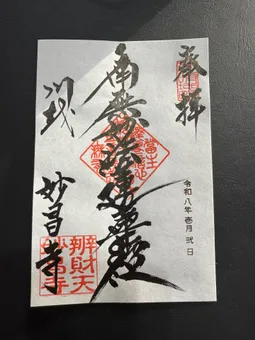 奉拝
南無妙法蓮華経
令和八年壱月弐日
川越
妙昌寺
辨財天
妙昌寺